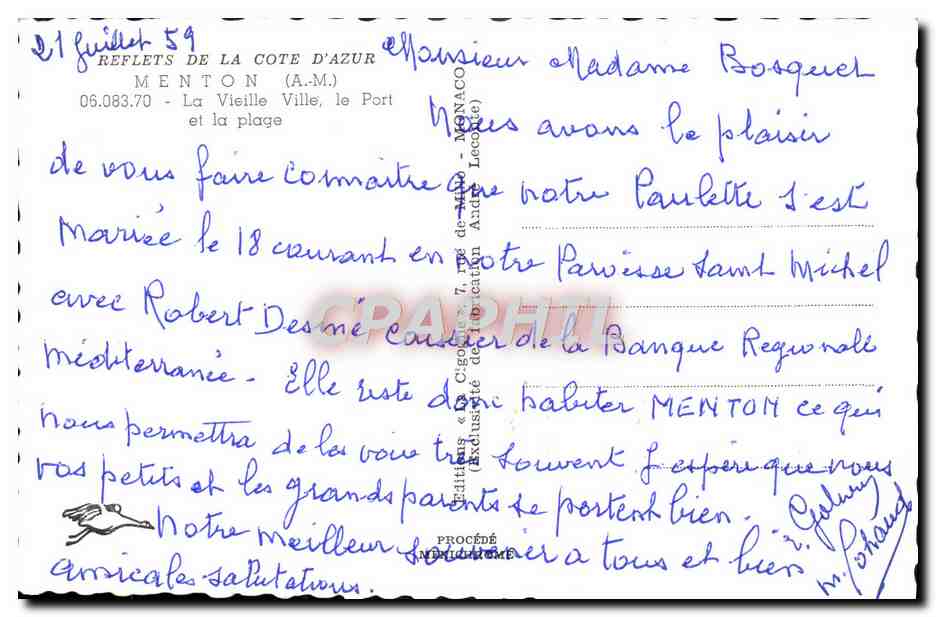 21 Juillet 59
REFLETS DE LA COTE D'AZUR
MENTON (A.-M.)
06.083.70 - La Vieille Ville, le Port
et la plage
Monsieur Madame Bosquet
Nous avons le plaisir
de vous faire connaitre que notre Paulette s'est
mariée le 18 courant en notre Paroisse Saint Michel
avec Robert Desiné caissier de la Banque Regionale
Méditerranée - Elle reste donc habiter MENTON ce qui
nous permettra de les voir très souvent J'espère que vous
vos petits et les grands parents se portent bien.
Notre meilleur souvenir a tous et bien
amicales salutations.
Editions « La Cigogne », 7, rue de Millo - MONACO
(Exclusivité de fabrication André Leconte)
PROCÉDÉ
MÉNICHROME
CPAPHIL